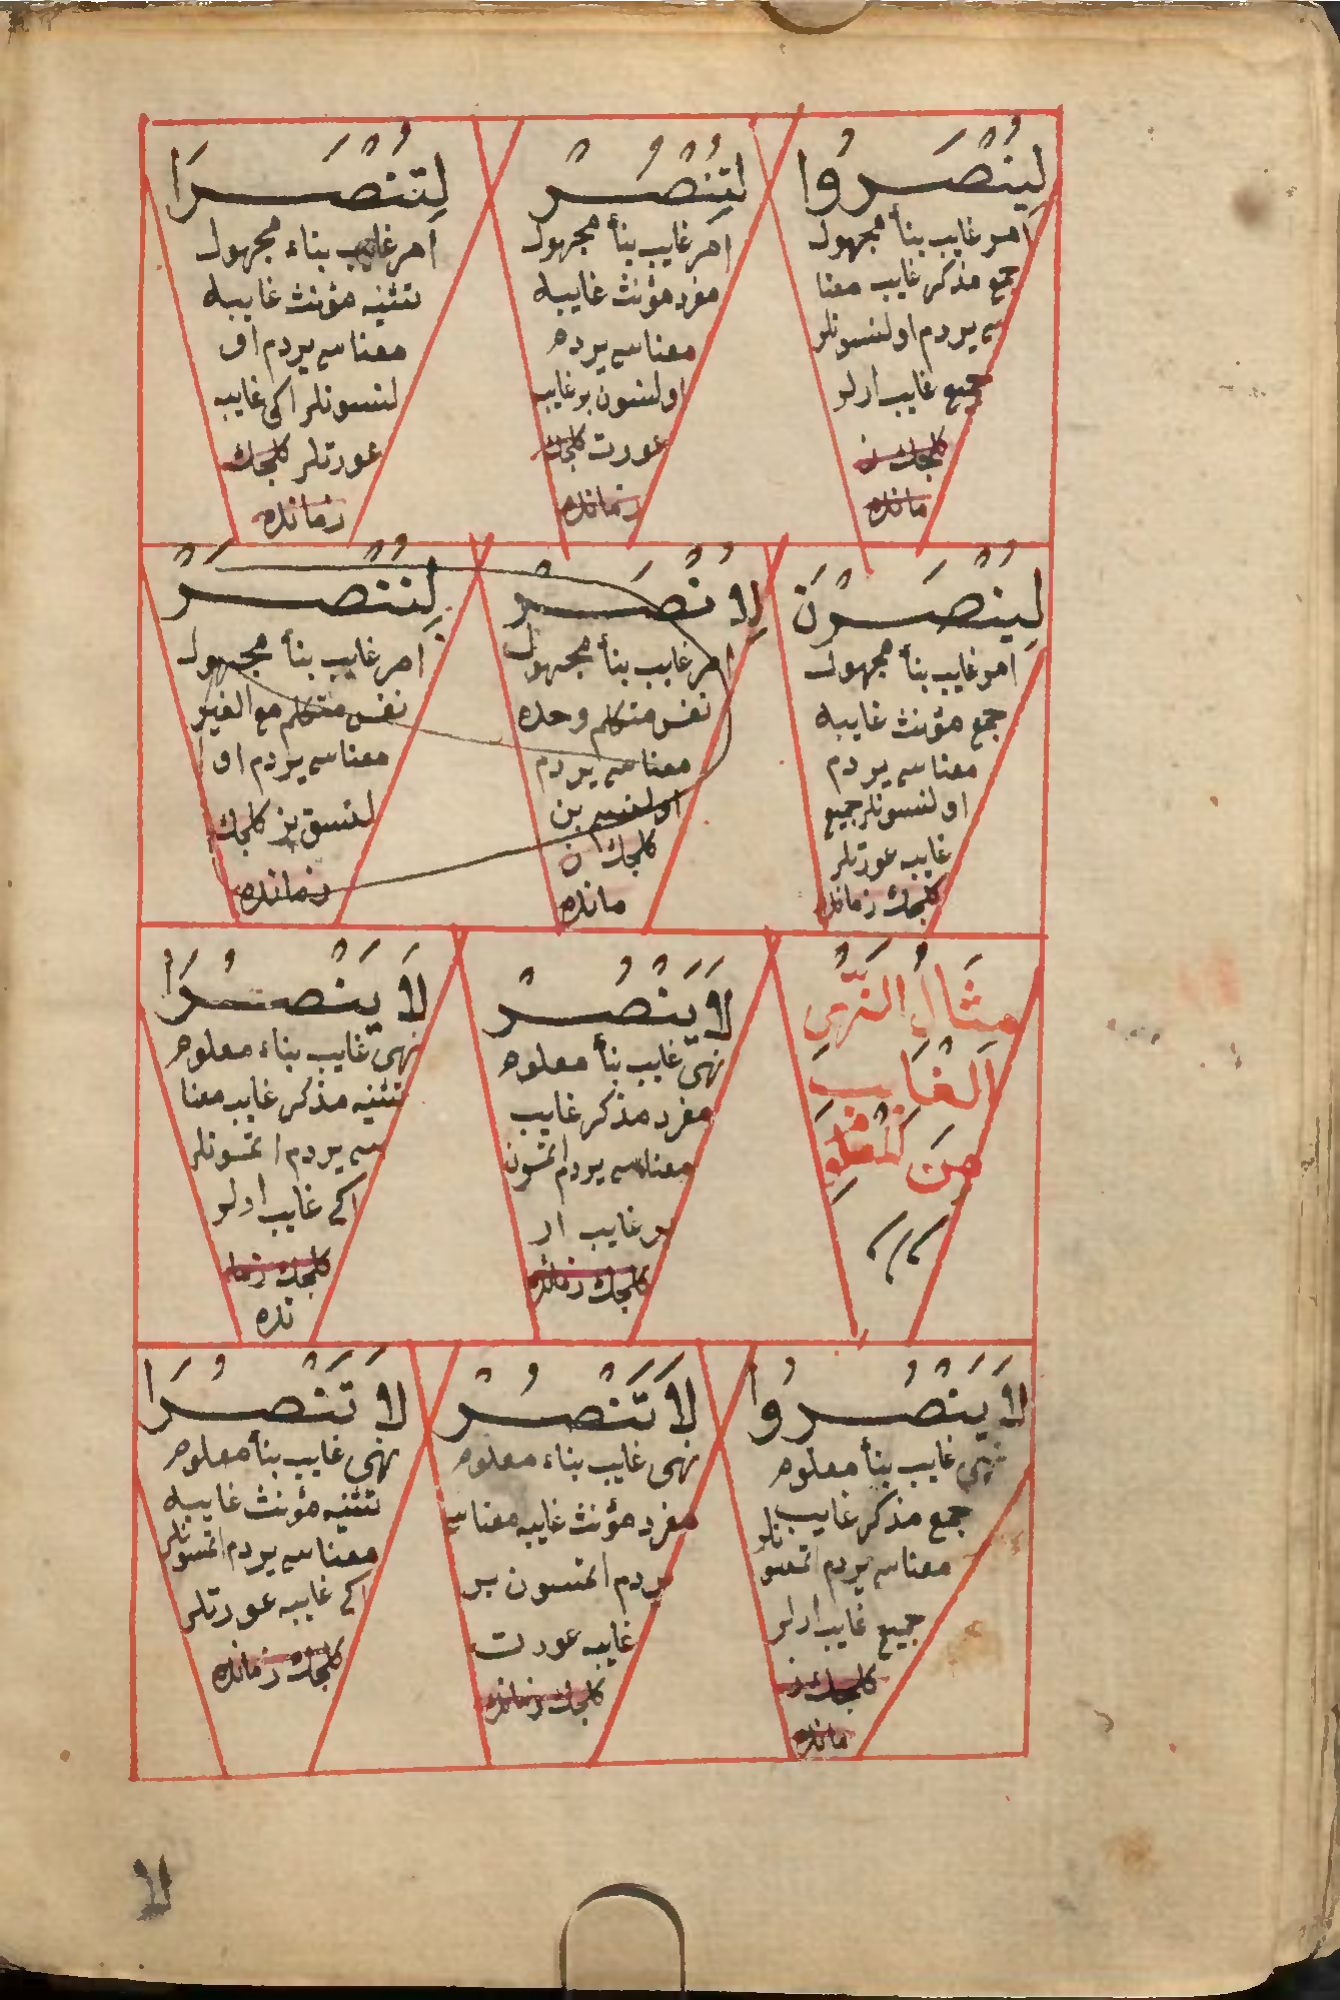 لِيُنْصَرُوا
امر غايب بنأ مجهول
جمع مذكر غايب معنا
سى يردم اولنسونلر
جميع غايب ارلر
كلجك ز
مانده
لِتُنْصَرْ
امر غايب بنأ مجهول
مفرد مؤنث غايبه
معناسى يردم
اولنسون بر غايب
عورت كلجك
زمانده
لِتُنْصَرَا
امر غايب بناء مجهول
تثنيه مؤنث غايبه
معناسى يردم او
لنسونلر اكى غايبه
عورتلر كلجك
زمانده
لِيُنْصَرْنَ
امر غايب بنأ مجهول
جمع مؤنث غايبه
معناسى يردم
اولنسونلر جميع
غايبه عورتلر
كلجك زمانده
لِاُنْصَرْ
امر غايب بنأ مجهول
نفس متكلم وحده
معناسى يردم
بن
كلجك ز
مانده
لِنُنْصَرْ
امر غايب بنأ مجهول
نفس متكلم مع الغير
معناسى يردم او
لنسق بز كلجك
زمانده
مِثَالُ النَّهْىِ
الْغَايِبِ
مِنَ
لَا يَنْصُرْ
نهى غايب بنأ معلوم
مفرد مذكر غايب
معناسى يردم اتمسون
بر غايب ار
كلجك زمانده
لَا يَنْصُرَا
نهى غايب بناء معلوم
تثنيه مذكر غايب معنا
سى يردم اتمسونلر
اكى غايب ارلر
كلجك زما
نده
لَا يَنْصُرُوا
نهى غايب بنأ معلوم
جمع مذكر غايب
معناسى يردم اتمسونلر
جميع غايب ارلر
كلجك ز
مانده
لَا تَنْصُرْ
نهى غايب بناء معلوم
مفرد مؤنث غايبه معناسى
يردم اتمسون بر
غايبه عورت
كلجك زمانده
لَا تَنْصُرَا
نهى غايب بنأ معلوم
تثنيه مؤنث غايبه
معناسى يردم اتمسونلر
اكى غايبه عورتلر
كلجك زمانده
لا